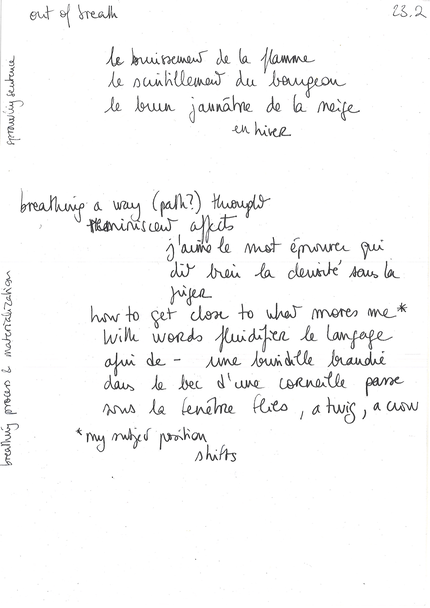 out of breath
23.2
sprawling sentence
le bruissement de la flamme
le scintillement du bourgeon
le brun jaunâtre de la neige
en hiver
breathing a way (path?) throught
reminiscent affects
j'aime le mot éprouver qui
dit bien la densité sans la
figer
how to get close to what moves me*
with words fluidifier le langage
afin de - une brindille brandie
dans le bec d'une corneille passe
sous la fenêtre flies, a twig, a crow
*my subject position
shifts
breathing process & materialization